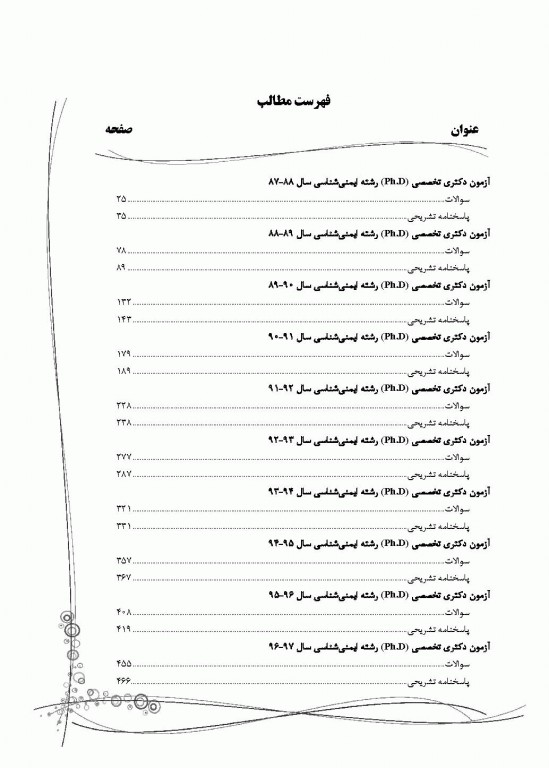 فهرست مطالب
عنوان صفحه
آزمون دکتری تخصصی (Ph.D) رشته ایمنی‌شناسی سال ۸۸-۸۷
سوالات ۲۵
پاسخنامه تشریحی ۳۵
آزمون دکتری تخصصی (Ph.D) رشته ایمنی‌شناسی سال ۸۹-۸۸
سوالات ۷۸
پاسخنامه تشریحی ۸۹
آزمون دکتری تخصصی (Ph.D) رشته ایمنی‌شناسی سال ۹۰-۸۹
سوالات ۱۳۲
پاسخنامه تشریحی ۱۴۳
آزمون دکتری تخصصی (Ph.D) رشته ایمنی‌شناسی سال ۹۱-۹۰
سوالات ۱۷۹
پاسخنامه تشریحی ۱۸۹
آزمون دکتری تخصصی (Ph.D) رشته ایمنی‌شناسی سال ۹۲-۹۱
سوالات ۲۲۸
پاسخنامه تشریحی ۲۳۸
آزمون دکتری تخصصی (Ph.D) رشته ایمنی‌شناسی سال ۹۳-۹۲
سوالات ۲۷۷
پاسخنامه تشریحی ۲۸۷
آزمون دکتری تخصصی (Ph.D) رشته ایمنی‌شناسی سال ۹۴-۹۳
سوالات ۳۲۱
پاسخنامه تشریحی ۳۳۱
آزمون دکتری تخصصی (Ph.D) رشته ایمنی‌شناسی سال ۹۵-۹۴
سوالات ۳۵۷
پاسخنامه تشریحی ۳۶۷
آزمون دکتری تخصصی (Ph.D) رشته ایمنی‌شناسی سال ۹۶-۹۵
سوالات ۴۰۸
پاسخنامه تشریحی ۴۱۹
آزمون دکتری تخصصی (Ph.D) رشته ایمنی‌شناسی سال ۹۷-۹۶
سوالات ۴۵۵
پاسخنامه تشریحی ۴۶۶